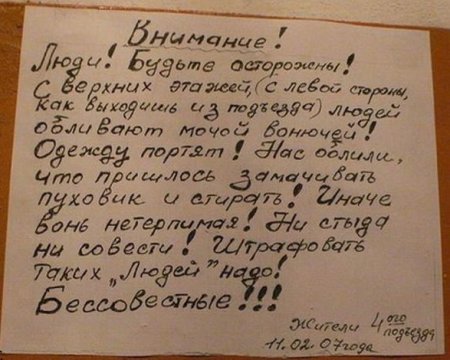 Внимание!
Люди! Будьте осторожны!
С верхних этажей, (с левой стороны,
как выходишь из подъезда) людей
обливают мочой вонючей!
Одежду портят! Нас облили,
что пришлось замачивать
пуховик и стирать! Иначе
вонь нетерпимая! Ни стыда
ни совести! Штрафовать
таких „Людей” надо!
Бессовестные!!!
Жители 4ого подъезда
11.02.07года